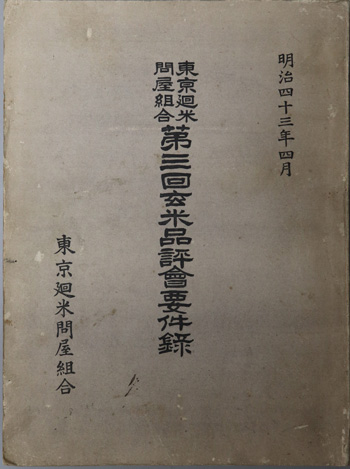 明治四十三年四月
東京廻米
問屋組合
第三回玄米品評會要件錄
東京廻米問屋組合